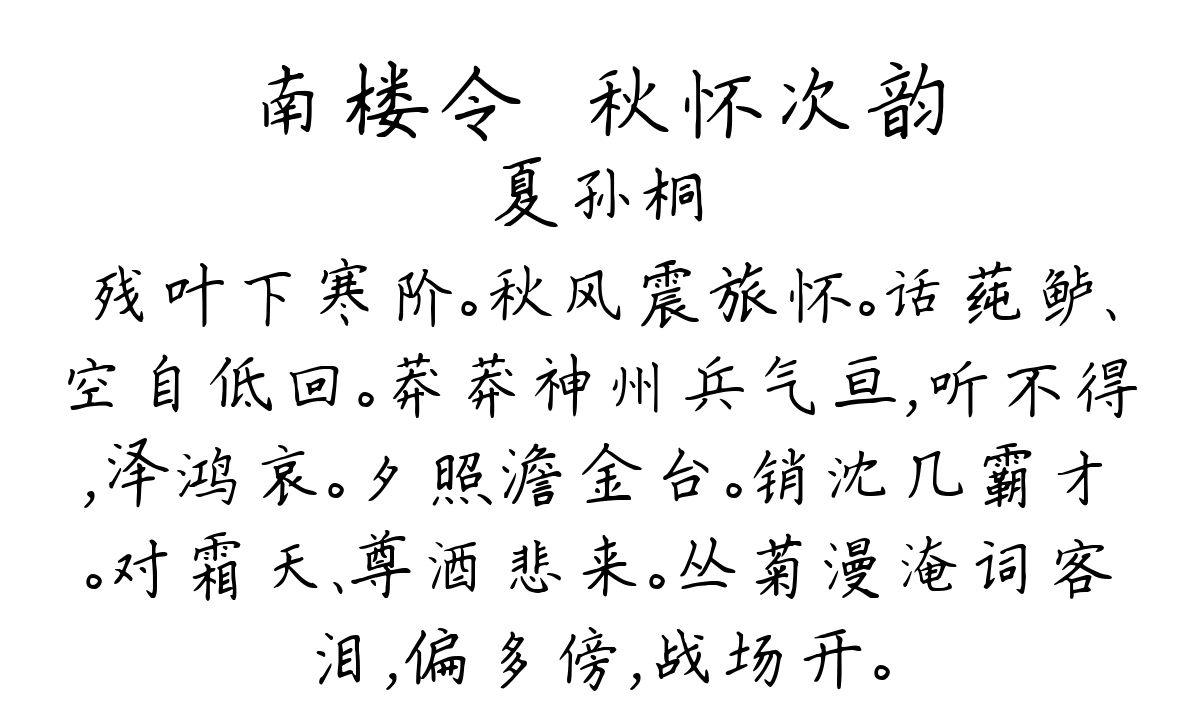 南楼令 秋怀次韵
夏孙桐
残叶下寒阶。秋风震旅怀。话莼鲈、
空自低回。莽莽神州兵气亘,听不得
,泽鸿哀。夕照澹金台。销沈几霸才
。对霜天、尊酒悲来。丛菊漫淹词客
泪,偏多傍,战场开。